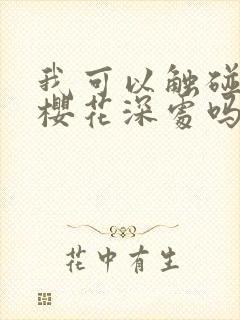 我可以触碰
樱花深处吗
花中有生